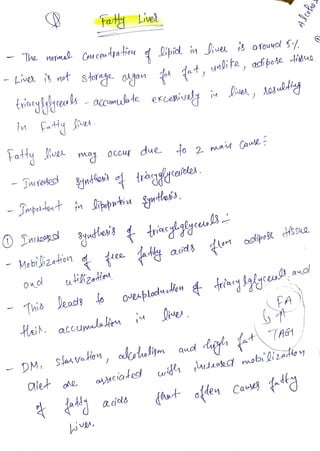 ① Fatty Liver
- The normal concentration of lipid in liver is around 5%.
- Liver is not storage organ for fat, unlike, adipose tissue
triacylglycerols - accumulate excessively in liver, resulting
in Fatty liver.
Fatty liver may occur due to 2 main cause:
- Increased synthesis of triacylglycerides.
- Impairment in lipoprotein synthesis.
① Increased synthesis of triacylglycerols:-
- Mobilization of free fatty acids from adipose tissue
and utilization.
- This leads to overproduction of triacylglycerols and
their accumulation in liver.
FA
TAG1
- DM, starvation, alcoholism and high fat
diet are associated with increased mobilization
of fatty acids that often causes fatty
liver.